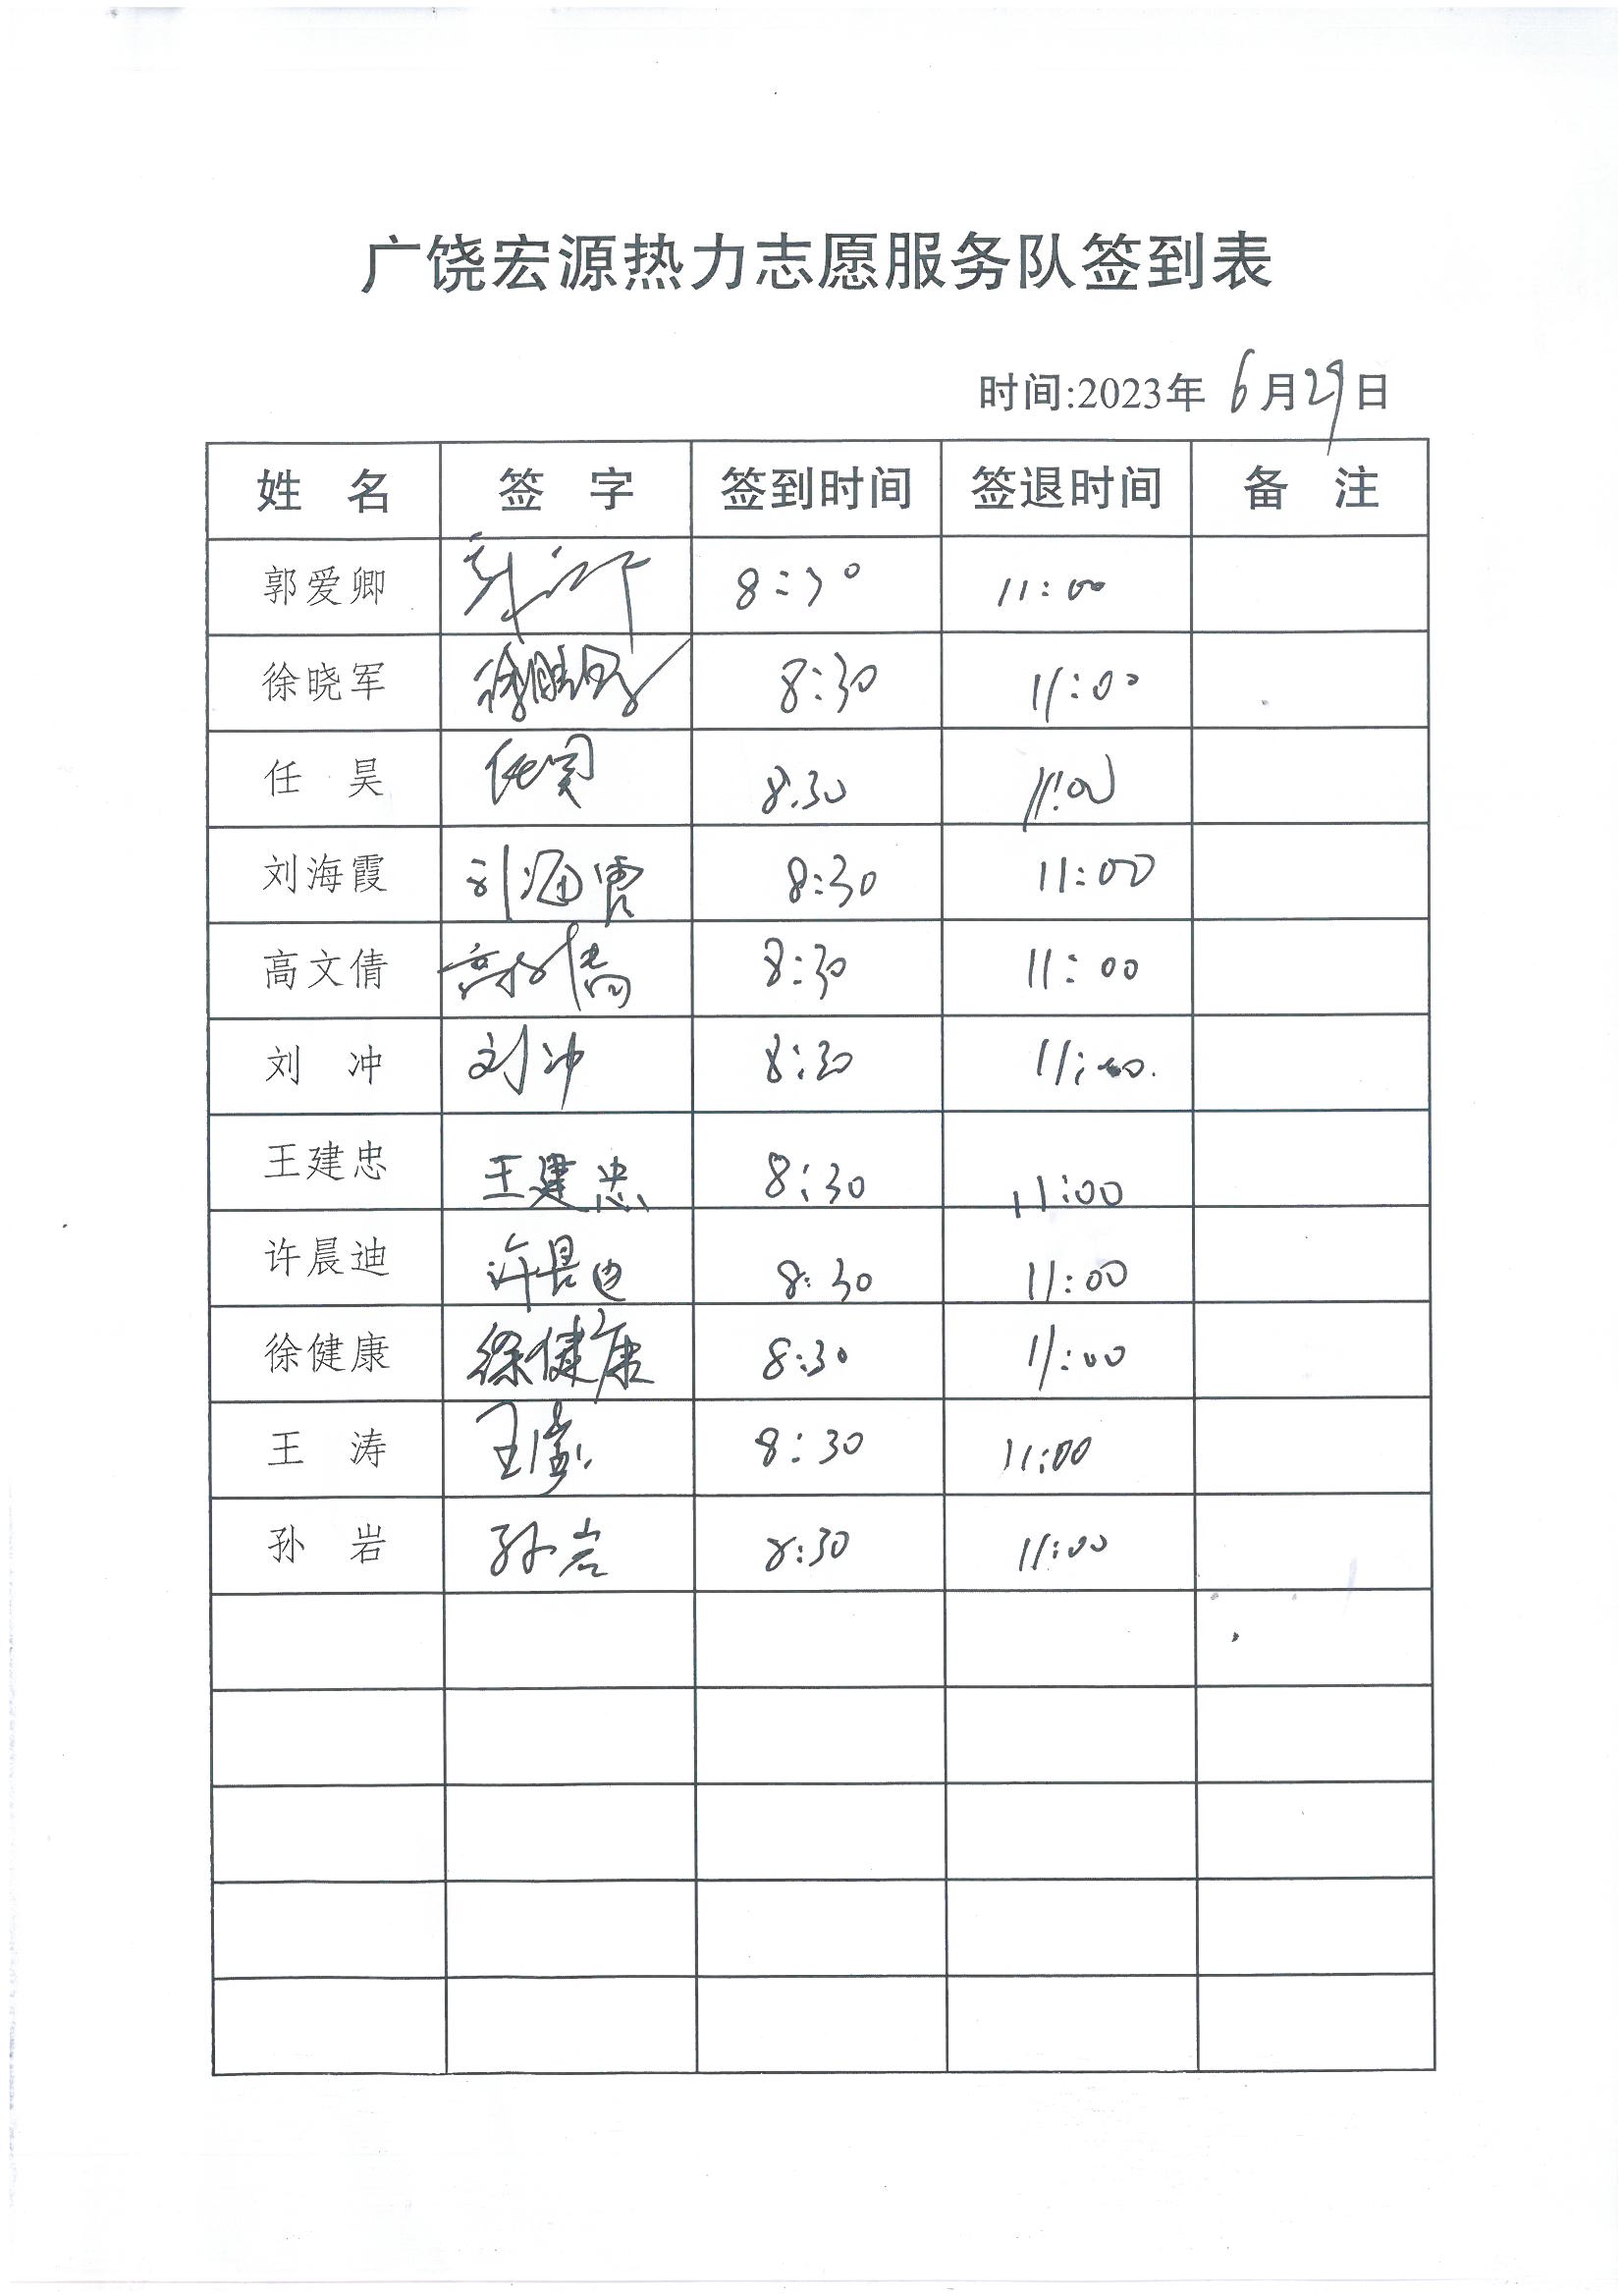 广饶宏源热力志愿服务队签到表
时间:2023年 6月29日
姓 名 签 字 签到时间 签退时间 备 注
郭爱卿 8:30 11:00
徐晓军 徐晓军 8:30 11:00
任 昊 任昊 8.30 11:00
刘海霞 刘海霞 8:30 11:00
高文倩 高文倩 8:30 11:00
刘 冲 刘冲 8:30 11:00.
王建忠 王建忠 8:30 11:00
许晨迪 许晨迪 8:30 11:00
徐健康 徐健康 8:30 11:00
王 涛 王涛 8:30 11:00
孙 岩 孙岩 8:30 11:00